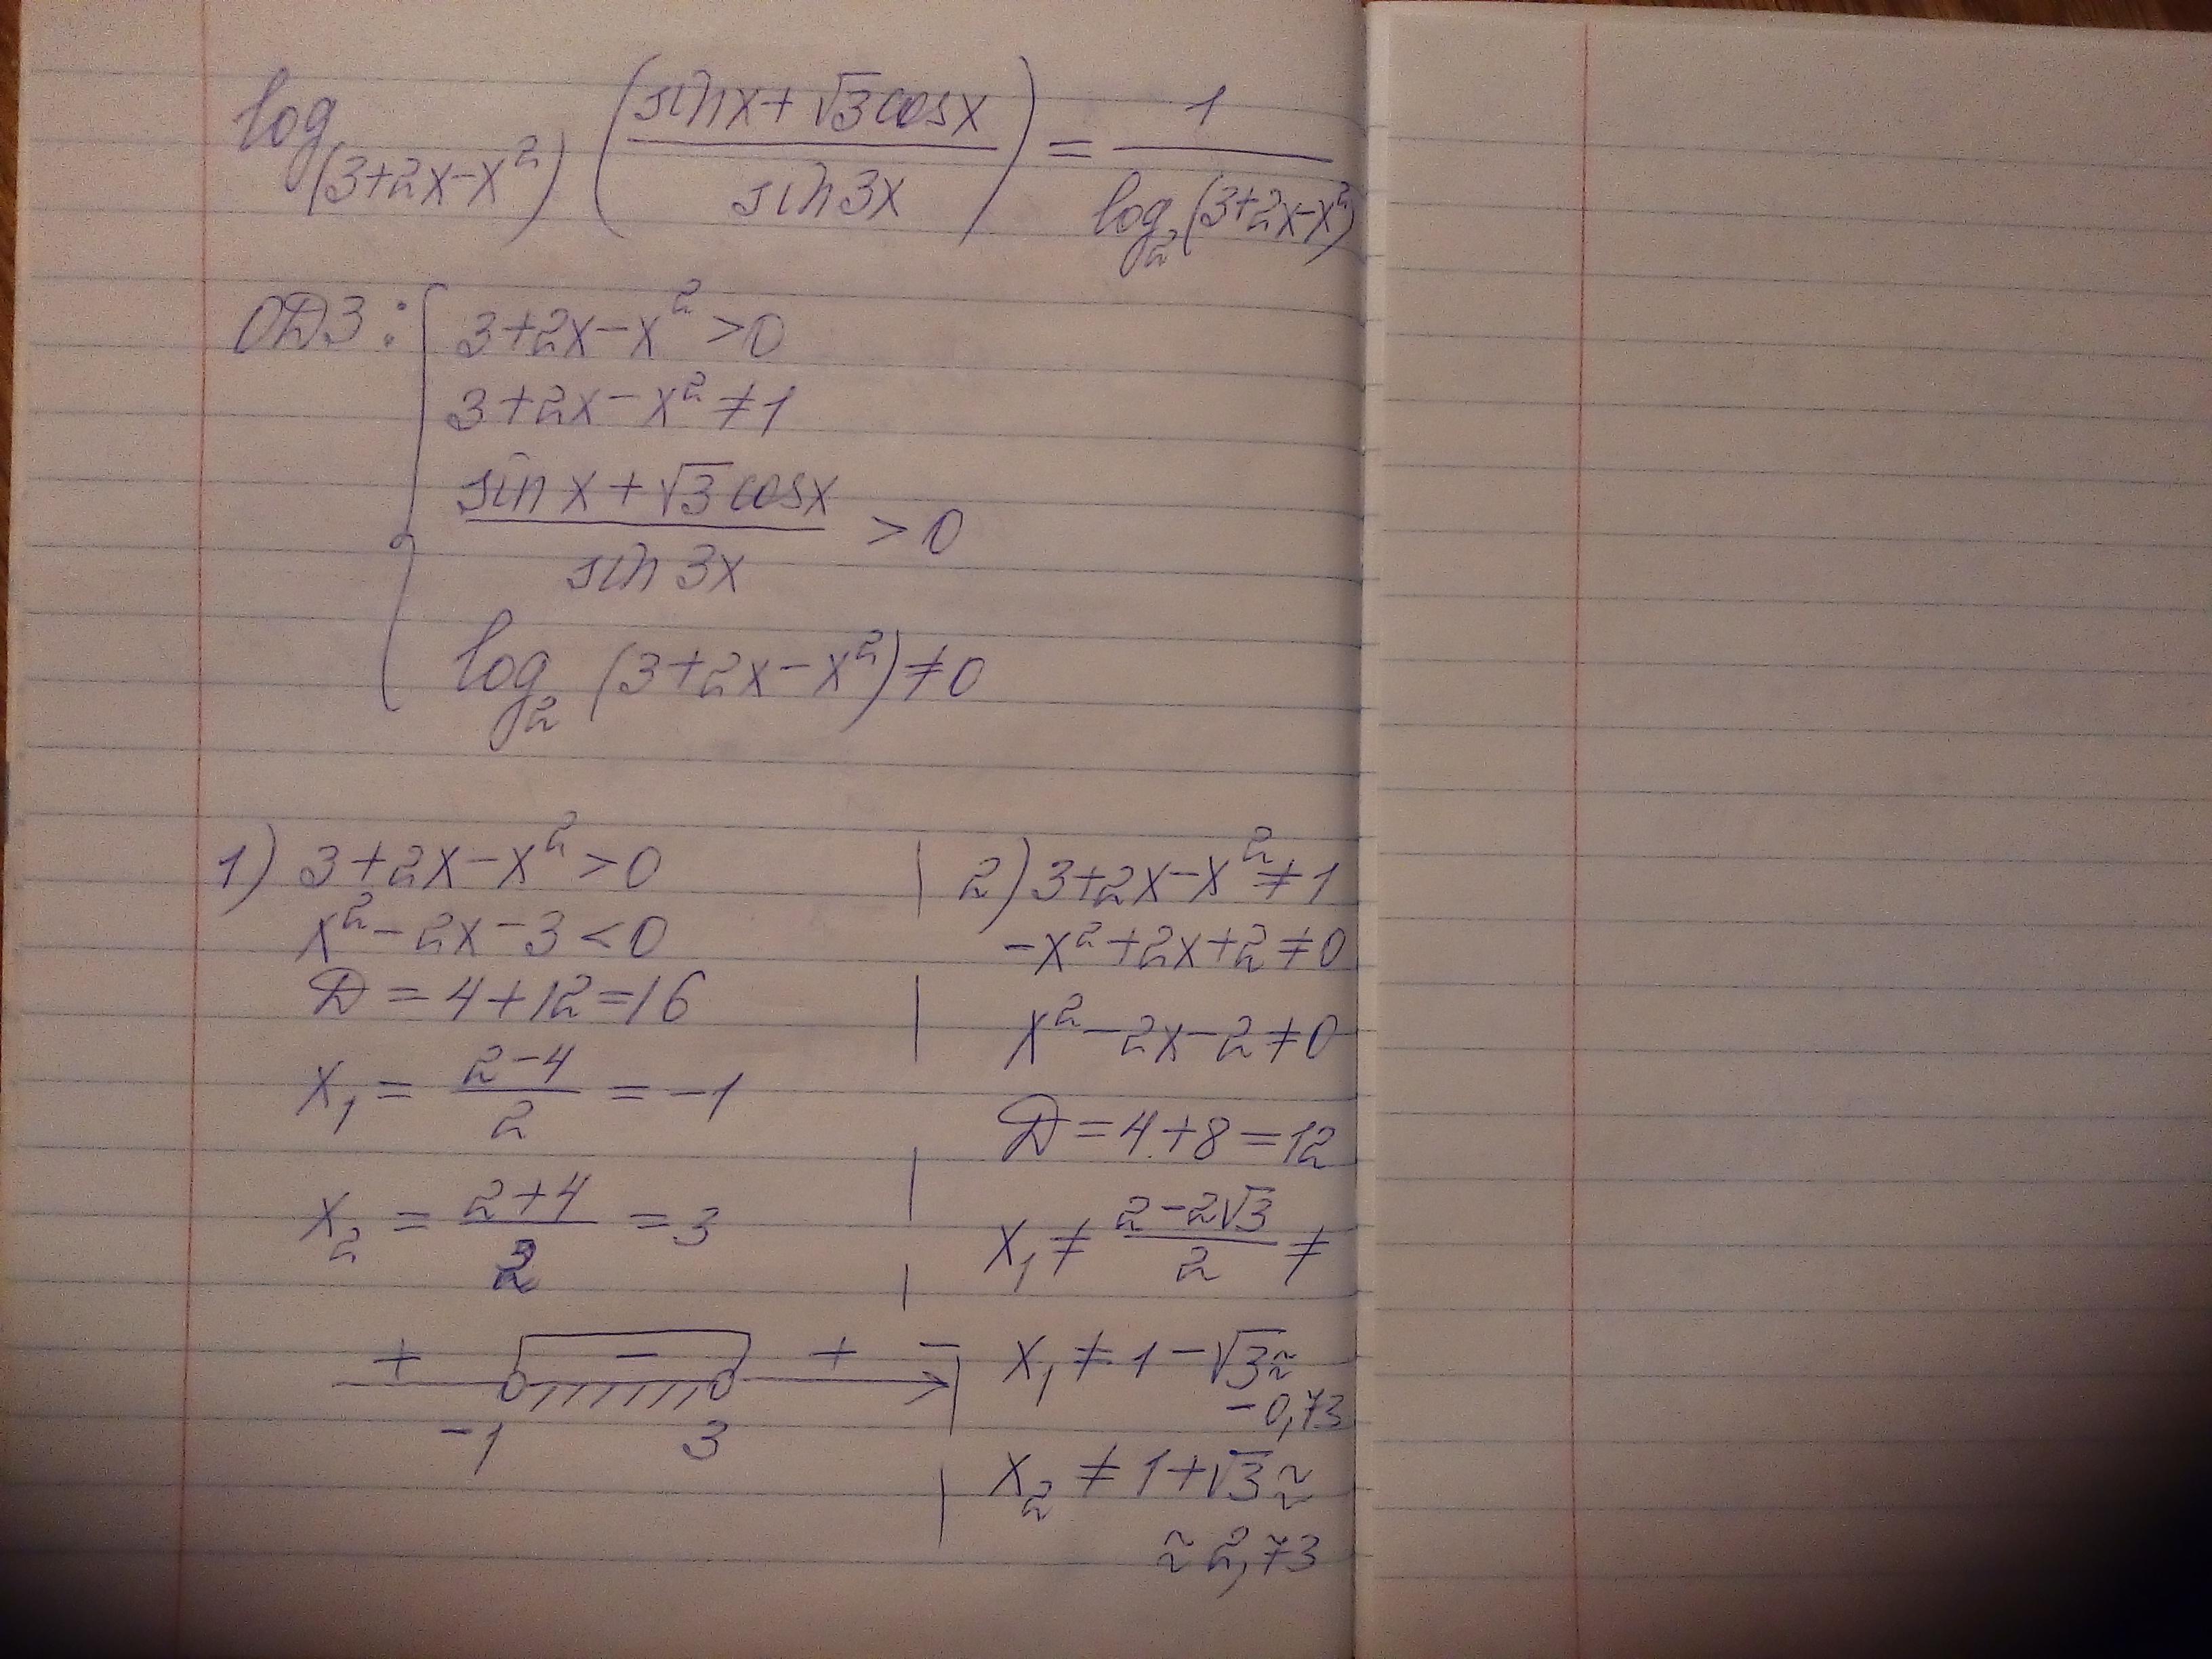 log_(3+2x-x²) ((sin x + √3 cos x) / (sin 3x)) = 1 / (log_2 (3+2x-x²))
ОДЗ: { 3+2x-x² > 0
3+2x-x² ≠ 1
(sin x + √3 cos x) / (sin 3x) > 0
log_2 (3+2x-x²) ≠ 0
1) 3+2x-x² > 0
x² - 2x - 3 < 0
D = 4+12 = 16
x₁ = (2-4)/2 = -1
x₂ = (2+4)/2 = 3
+ - + -
-1 3
2) 3+2x-x² ≠ 1
-x²+2x+2 ≠ 0
x²-2x-2 ≠ 0
D = 4+8 = 12
x₁ ≠ (2-2√3)/2 ≠
x₁ ≠ 1-√3 ≈
-0,73
x₂ ≠ 1+√3 ≈
≈ 2,73